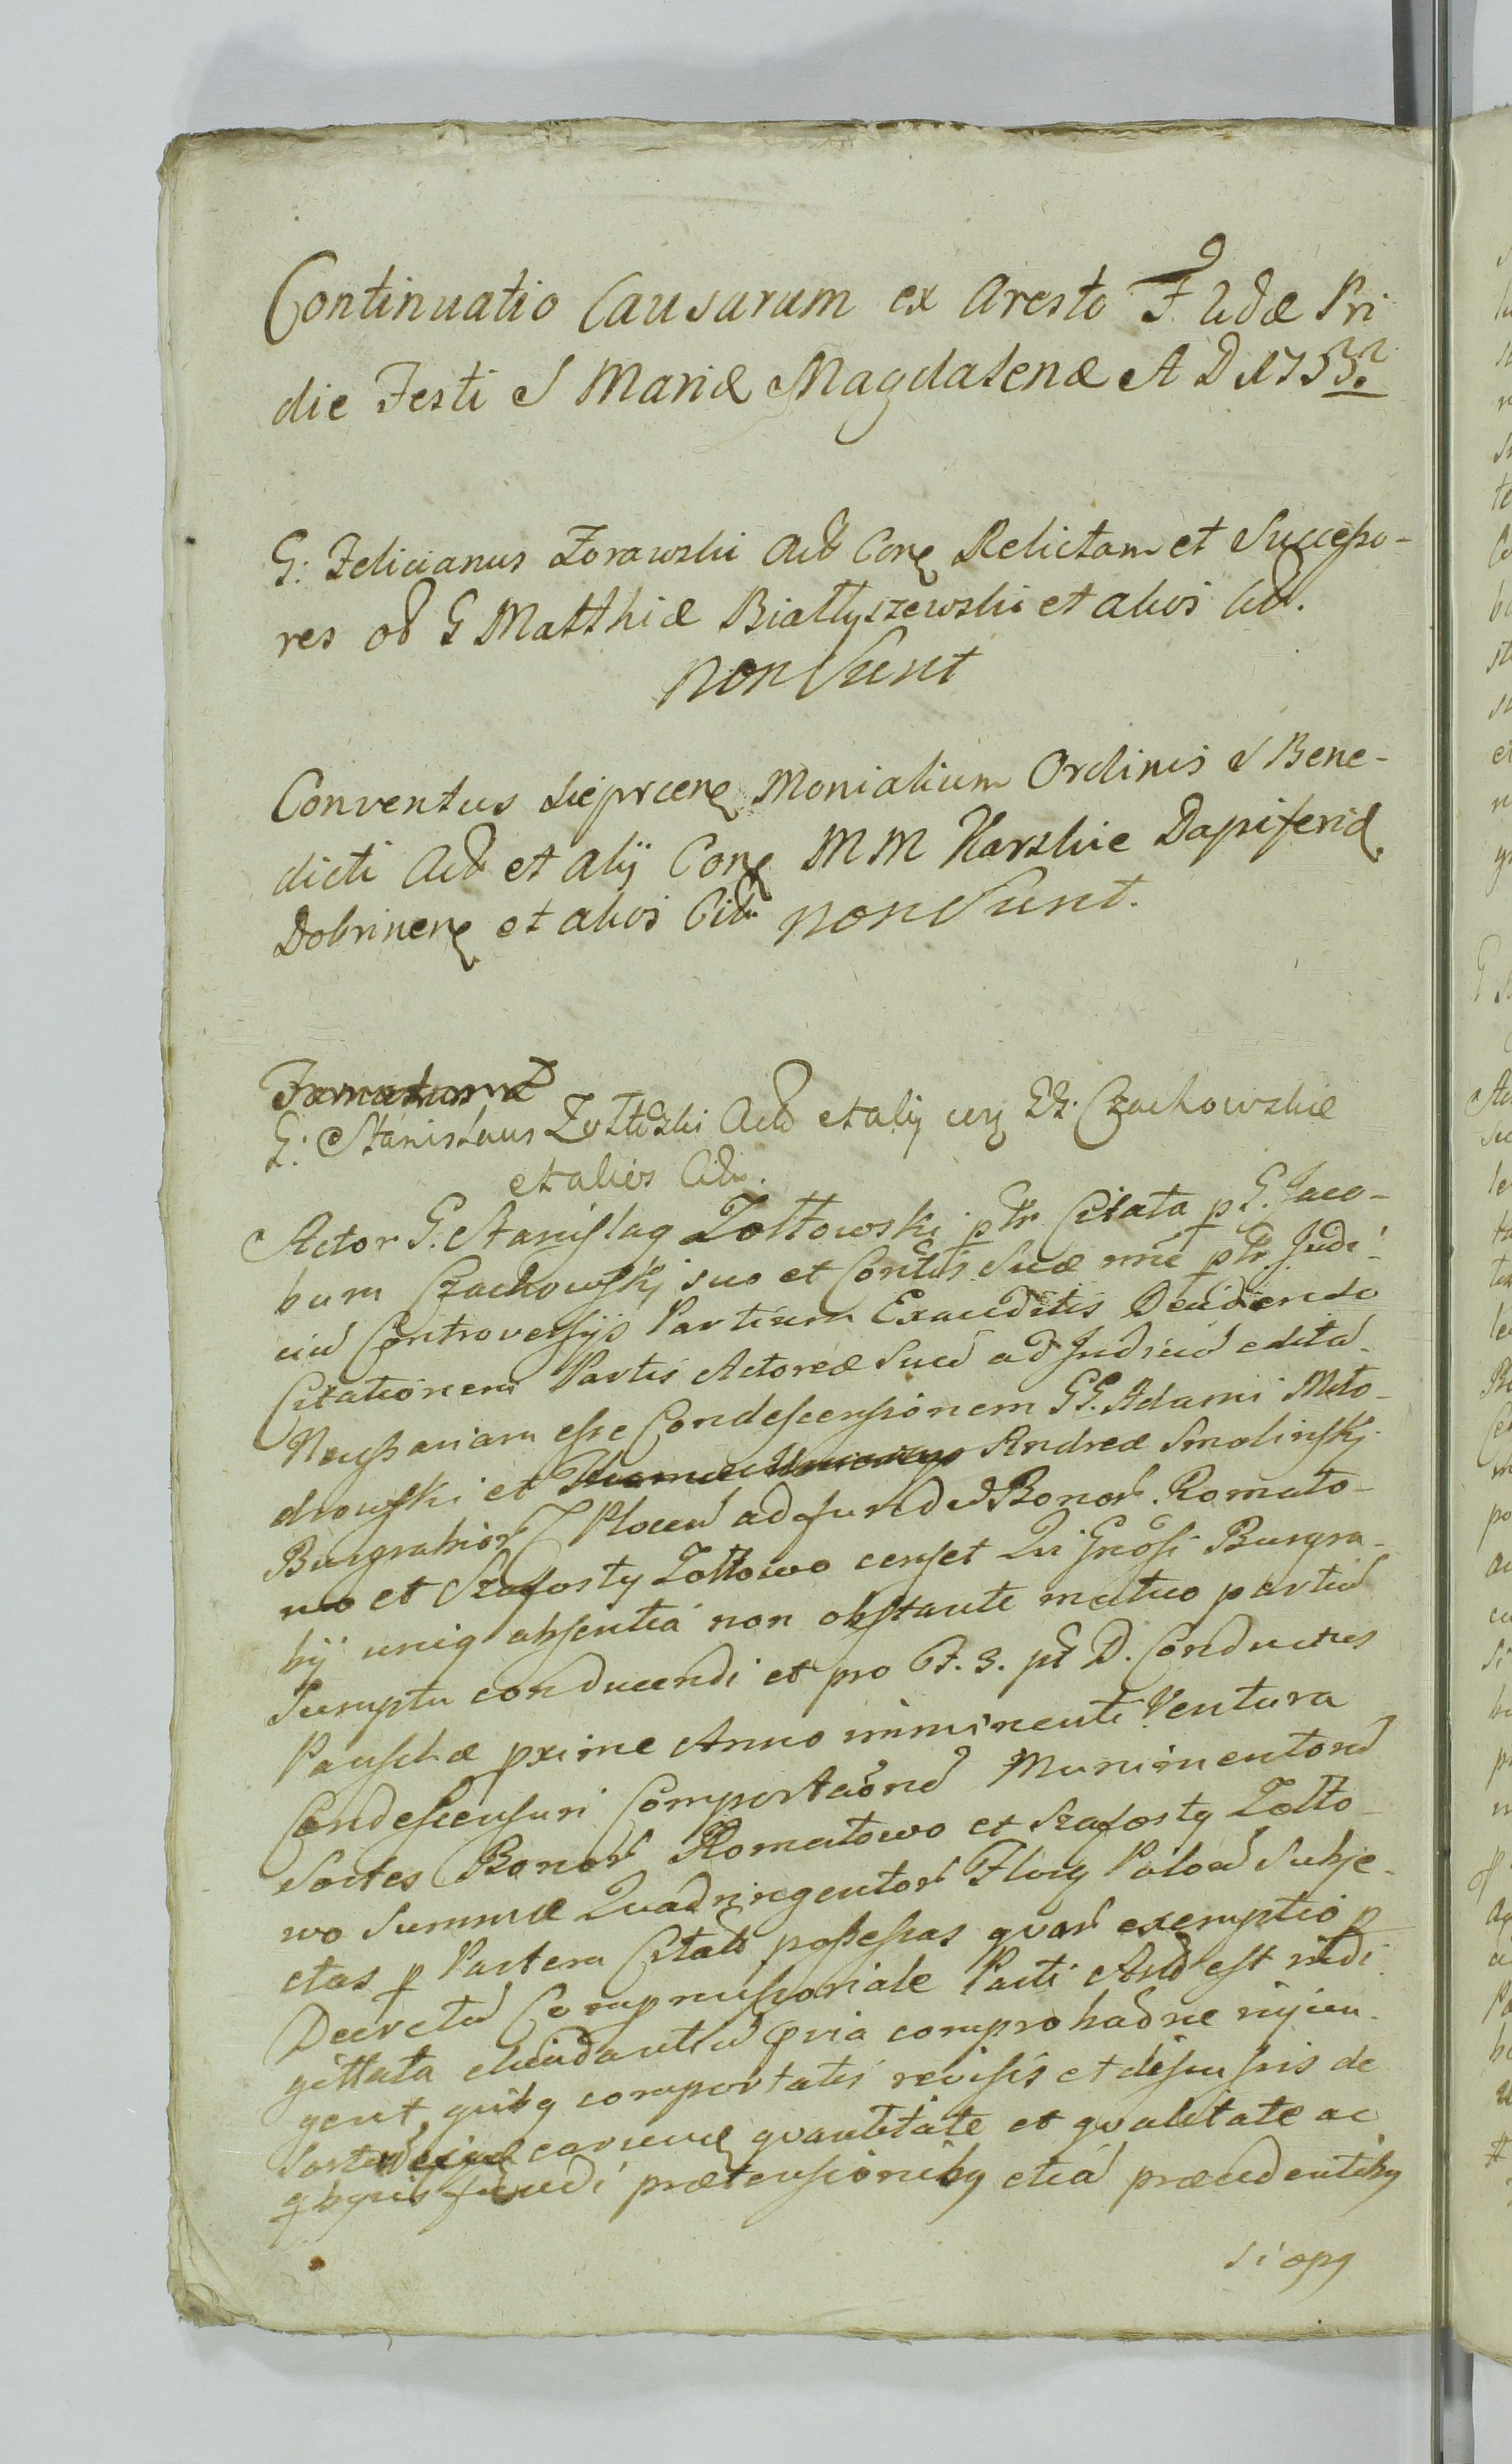 Continuatio Causarum ex Aresto F. 2dæ Pri
die Festi S Mariæ Magdalenæ A D 1753.
G: Felicianus Zorawski Act Con Relictam et Successo-
res od G Matthiæ Białłyszewski et alios Cit.
non sunt
Conventus Sieprcen Monialium Ordinis S Bene-
dicti Act et alij Con M M Karskie Dapiferid
Dobrinen et alios Cit. non sunt.
G: Stanislaus Zołtowski Act et alij con GG. Czachowskie
et alios Cit.
Actor G. Stanislaq Zołtowski p Pr. Citata p G. Jaco-
bum Czachowskj suo et Contlis Suæ nne p Pr. Judi-
ciu Controversijs Partium Exauditis Decidendo
Citationem Partis Actoreæ Suu ad Judiciu edita
Necessariam esse Condescensionem GG. Adami Mło-
drowski et Andreæ Smolinskj
Burgrabior C Plocen ad fundu Bonor. Romato-
wo et Szafosty Zołtowo censet Qui Gnosi Burgra-
bij uniq absentia non obstante mutuo partiu
Sumptu conducendi et pro F. 3. pt D. Conductus
Paschæ pxime Anno imminenti Ventura
Condescensuri Comportaōnē Munimentoru
Sortes Bonor Romatowo et Szafosty Zołto-
wo Summæ Quadringentor Flory Polon Subje-
ctas p Partem Citata possessas quar exemptio p
Decretu Compromissoriale Parti Act est
comprobaōne injun-
gent, quibq comportatis revisis et discussis de
earum quantitate et qualitate ac
fundi prætensionibq etiā præcedentibq
si opq